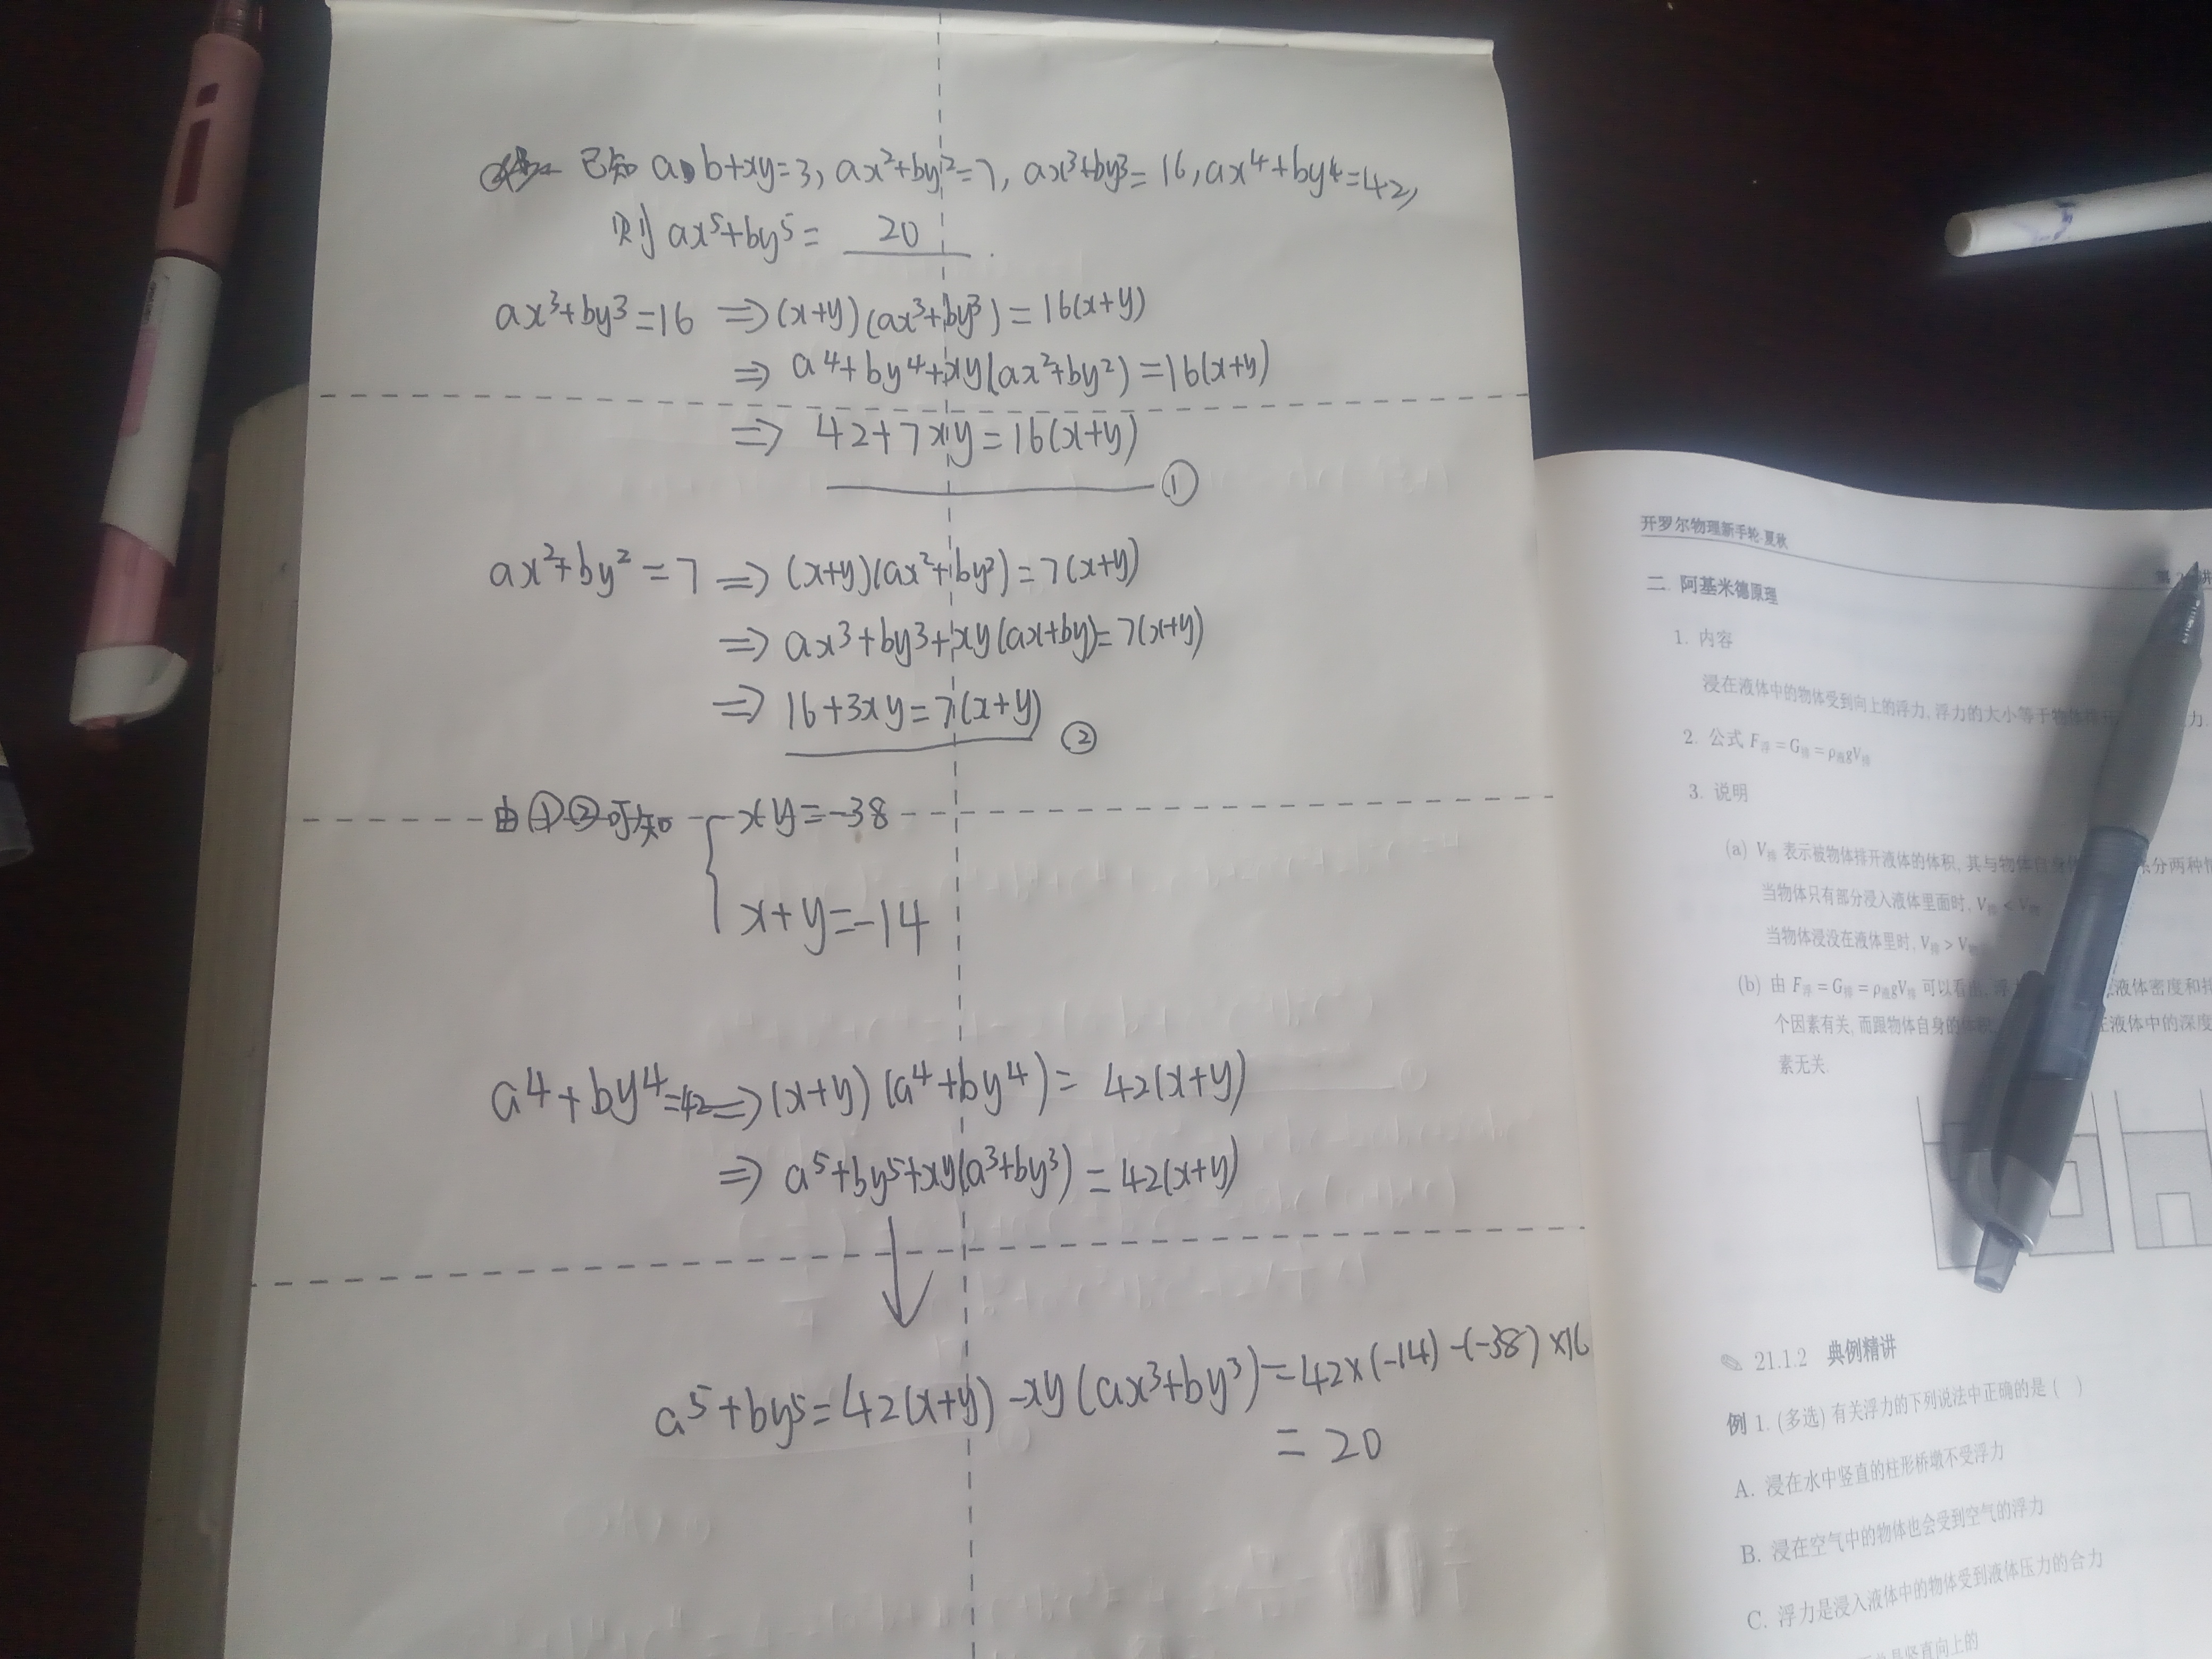 已知 a b+xy=3, ax²+by²=7, ax³+by³=16, ax⁴+by⁴=42,
则 ax⁵+by⁵= 20 .
ax³+by³=16 ⇒(x+y)(ax³+by³)=16(x+y)
⇒ a⁴+by⁴+xy(ax²+by²)=16(x+y)
⇒ 42+7xy=16(x+y)
①
ax²+by²=7 ⇒(x+y)(ax²+by²)=7(x+y)
⇒ ax³+by³+xy(ax+by)=7(x+y)
⇒ 16+3xy=7(x+y)
②
由①②可知 { xy=-38
x+y=-14
a⁴+by⁴=42⇒(x+y)(a⁴+by⁴)=42(x+y)
⇒ a⁵+by⁵+xy(a³+by³)=42(x+y)
a⁵+by⁵=42(x+y)-xy(ax³+by³)=42×(-14)-(-38)×16
=20
开罗尔物理新手轮·夏秋
第 讲
二. 阿基米德原理
1. 内容
浸在液体中的物体受到向上的浮力, 浮力的大小等于物体排开 力.
2. 公式 F浮=G排=ρ液gV排
3. 说明
(a) V排 表示被物体排开液体的体积, 其与物体自身体 分两种情
当物体只有部分浸入液体里面时, V排<V物
当物体浸没在液体里时, V排>V物
(b) 由 F浮=G排=ρ液gV排 可以看出, 浮 液体密度和排
个因素有关, 而跟物体自身的体积 在液体中的深度
素无关.
21.1.2 典例精讲
例 1. (多选) 有关浮力的下列说法中正确的是 ( )
A. 浸在水中竖直的柱形桥墩不受浮力
B. 浸在空气中的物体也会受到空气的浮力
C. 浮力是浸入液体中的物体受到液体压力的合力
是竖直向上的